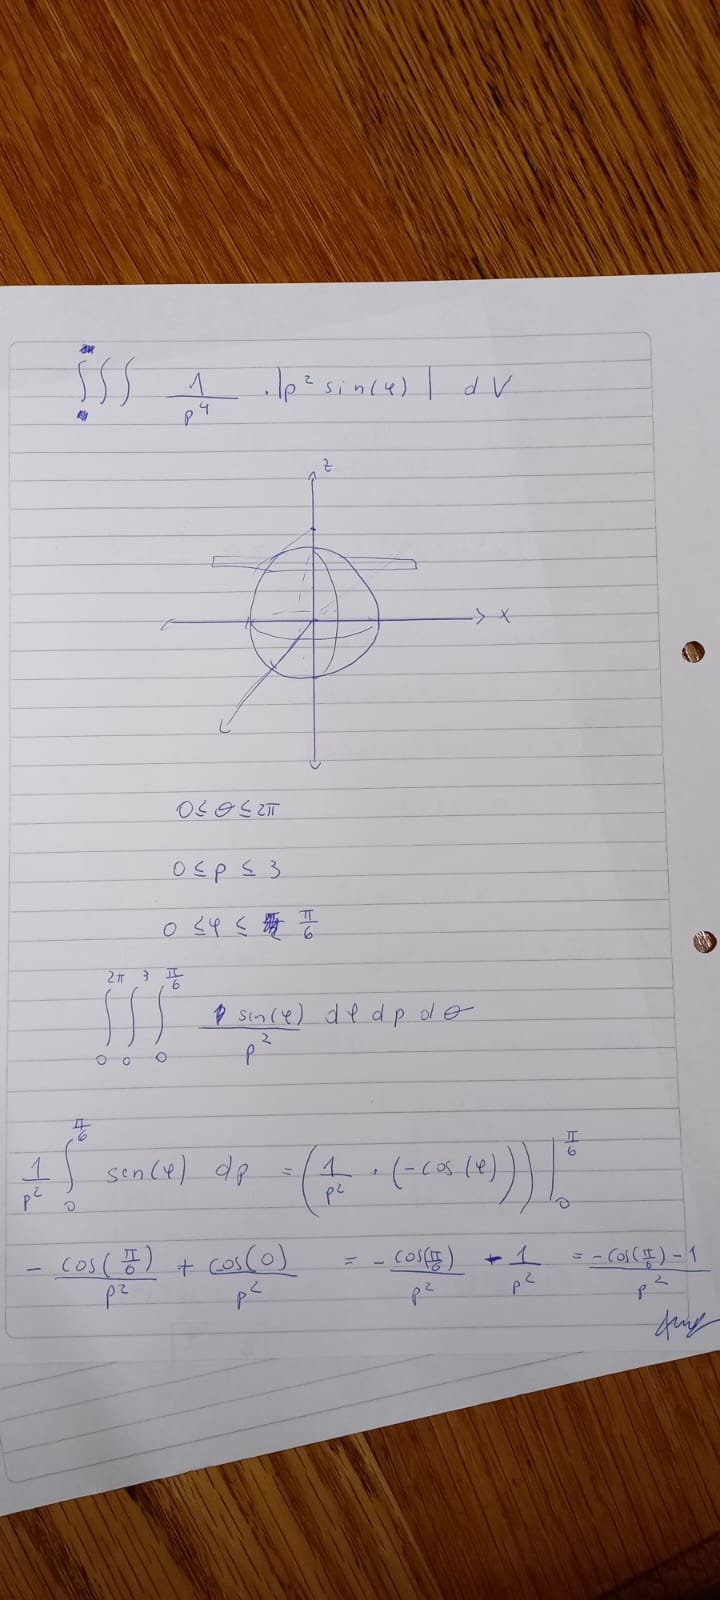 ∫∫∫ 1/p⁴ · |p² sin(φ)| dV
z
x
0 ≤ θ ≤ 2π
0 ≤ p ≤ 3
0 ≤ φ ≤ π/6
∫₀^2π ∫₀^3 ∫₀^π/6 sin(φ)/p² dφ dp dθ
1/p² ∫₀^π/6 sen(φ) dp = (1/p² · (-cos(φ))) |₀^π/6
- cos(π/6)/p² + cos(0)/p² = - cos(π/6)/p² - 1/p² = (-cos(π/6) - 1)/p²